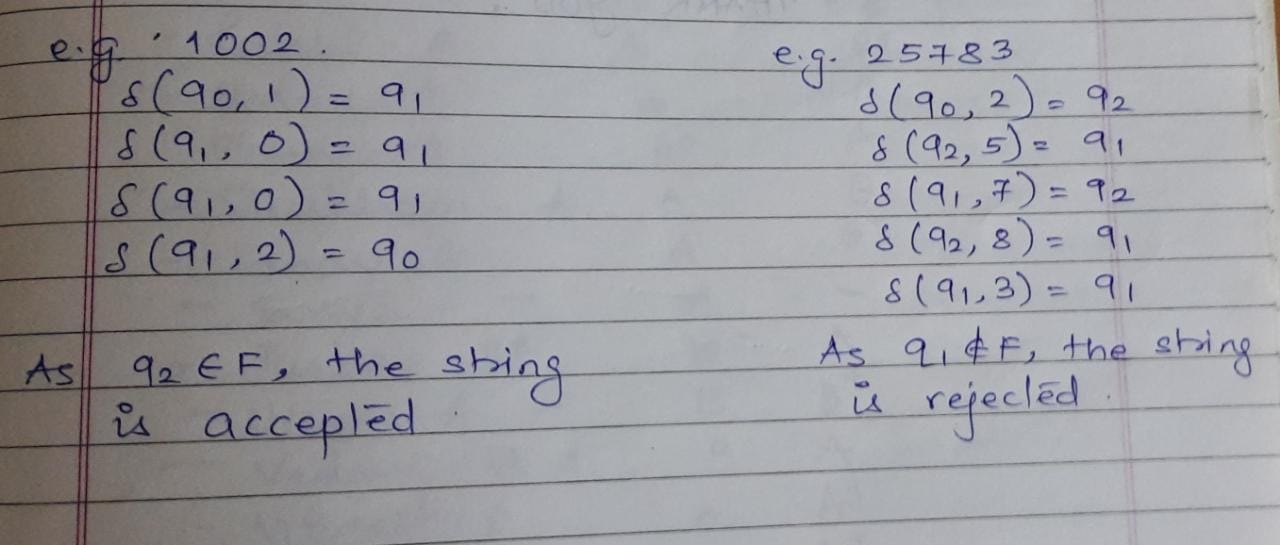 e.g. 1002.
δ(q0, 1) = q1
δ(q1, 0) = q1
δ(q1, 0) = q1
δ(q1, 2) = q0
As q2 ∈ F, the string
is accepted.
e.g. 25783
δ(q0, 2) = q2
δ(q2, 5) = q1
δ(q1, 7) = q2
δ(q2, 8) = q1
δ(q1, 3) = q1
As q1 ∉ F, the string
is rejected.